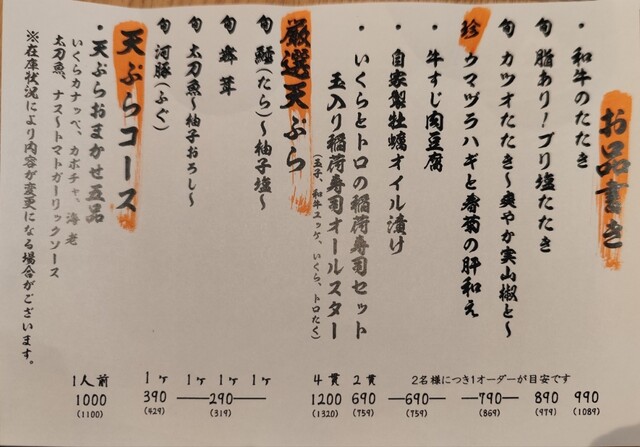 お品書き
・和牛のたたき 990 (1089)
旬 脂あり！ブリ塩たたき 890 (979)
旬 カツオたたき〜爽やか実山椒と〜
珍 ウマヅラハギと春菊の肝和え 790 (869)
・牛すじ肉豆腐
・自家製牡蠣オイル漬け 690 (759)
・いくらとトロの稲荷寿司セット 2貫 690 (759)
玉入り稲荷寿司オールスター 4貫 1200 (1320)
(玉子、和牛ユッケ、いくら、トロたく)
2名様につき1オーダーが目安です
厳選天ぷら
旬 鱈(たら)〜柚子塩〜 1ヶ
旬 舞茸 1ヶ 290 (319)
旬 太刀魚〜柚子おろし〜 1ヶ
旬 河豚(ふぐ) 1ヶ 390 (429)
天ぷらコース
・天ぷらおまかせ五品 1人前 1000 (1100)
いくらカナッペ、カボチャ、海老
太刀魚、ナス〜トマトガーリックソース
※在庫状況により内容が変更になる場合がございます。